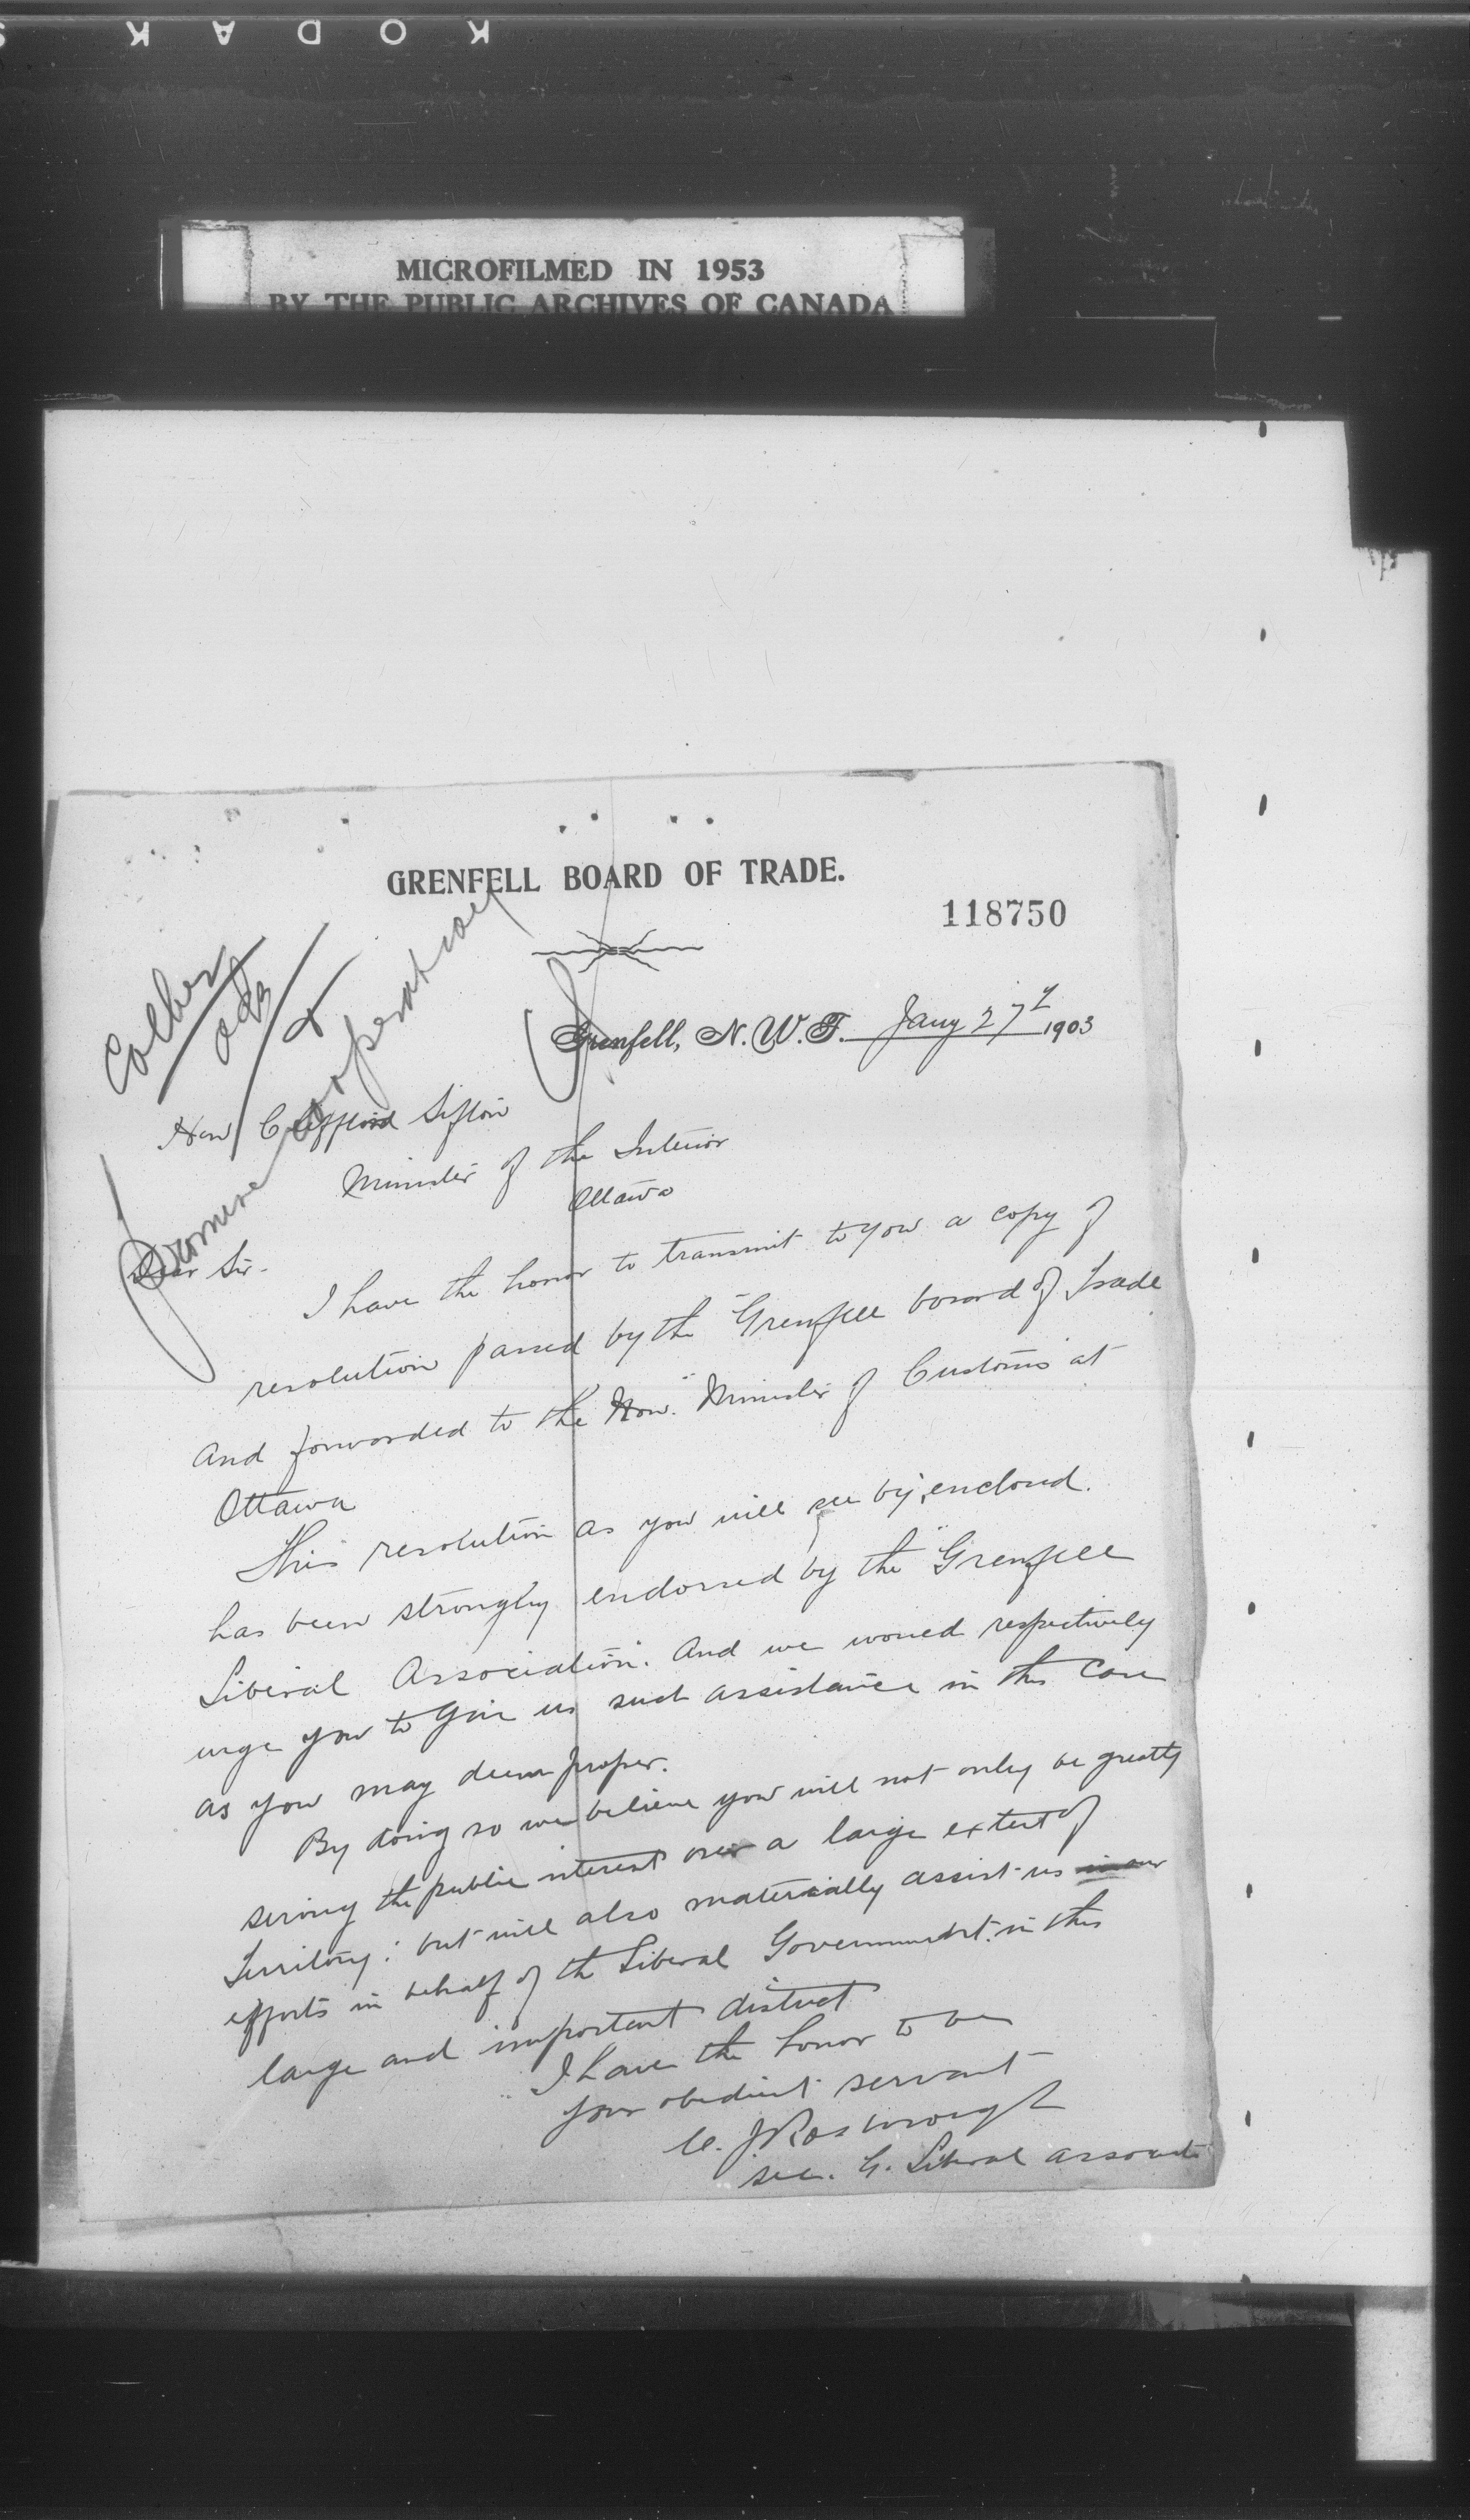 KODAK
MICROFILMED IN 1953
BY THE PUBLIC ARCHIVES OF CANADA
GRENFELL BOARD OF TRADE.
118750
Grenfell, N.W.T. Jany 27th 1903
Collier
ack
&
Promise cooperation
Hon Clifford Sifton
Minister of the Interior
Ottawa
Dear Sir.
I have the honor to transmit to you a copy of
resolution passed by the "Grenfell board of Trade"
and forwarded to the Hon. Minister of Customs at
Ottawa
This resolution as you will see by enclosed.
has been strongly endorsed by the "Grenfell
Liberal Association". And we would respectively
urge you to give us such assistance in this case
as you may deem proper.
By doing so we believe you will not only be greatly
serving the public interest over a large extent of
Territory: but will also materially assist us in our
efforts in behalf of the Liberal Government. in this
large and important district
I have the honor to be
your obedient servant
Sec. G. Liberal Associat